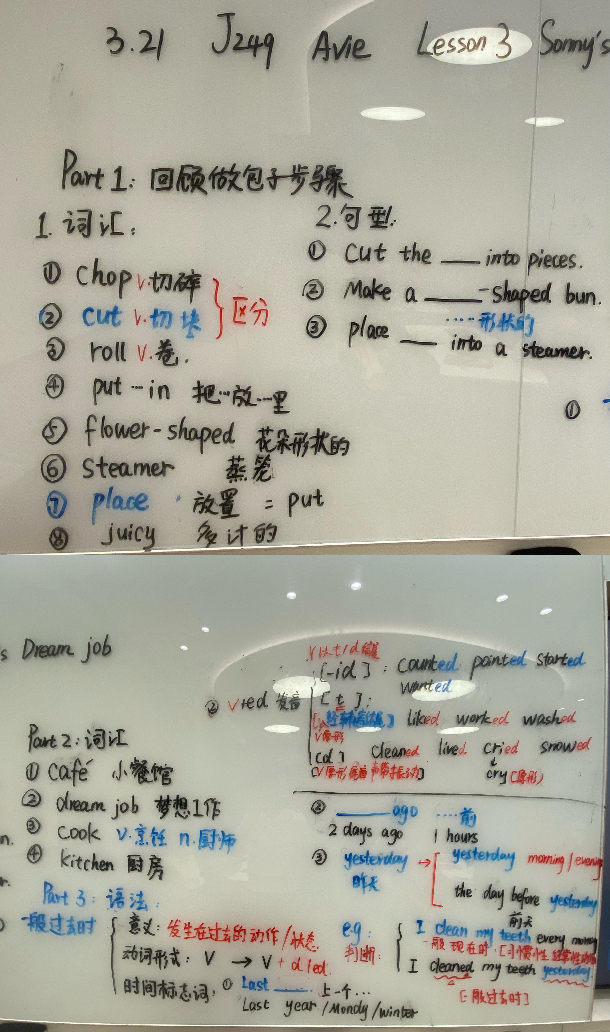 3.21 J249 Avie Lesson 3 Sonny's
Part 1: 回顾做包子步骤
1. 词汇:
① chop v.切碎
② cut v.切块
区分
③ roll v.卷.
④ put…in 把…放…里
⑤ flower-shaped 花朵形状的
⑥ steamer 蒸笼
⑦ place 放置 = put
⑧ juicy 多汁的
2. 句型:
① Cut the ___ into pieces.
② Make a ___-shaped bun.
……形状的
③ place ___ into a steamer.
①
s Dream job
Part 2: 词汇
① café 小餐馆
② dream job 梦想工作
③ cook v.烹饪 n.厨师
④ kitchen 厨房
② v+ed 发音
[-id]: counted painted started
wanted
[t]:
liked worked washed
v原形
[d] cleaned lived cried snowed
cry(原形)
② ___ ago ……前
2 days ago 1 hours
③ yesterday → yesterday morning/evening
昨天
the day before yesterday
前天
Part 3: 语法:
一般过去时
意义: 发生在过去的动作/状态
动词形式: V → V + d/ed.
时间标志词: ① Last ___ 上一个…
Last year/Mondy/winter
eg:
判断:
I clean my teeth every
一般现在时
I cleaned my teeth yesterday.
[一般过去时]